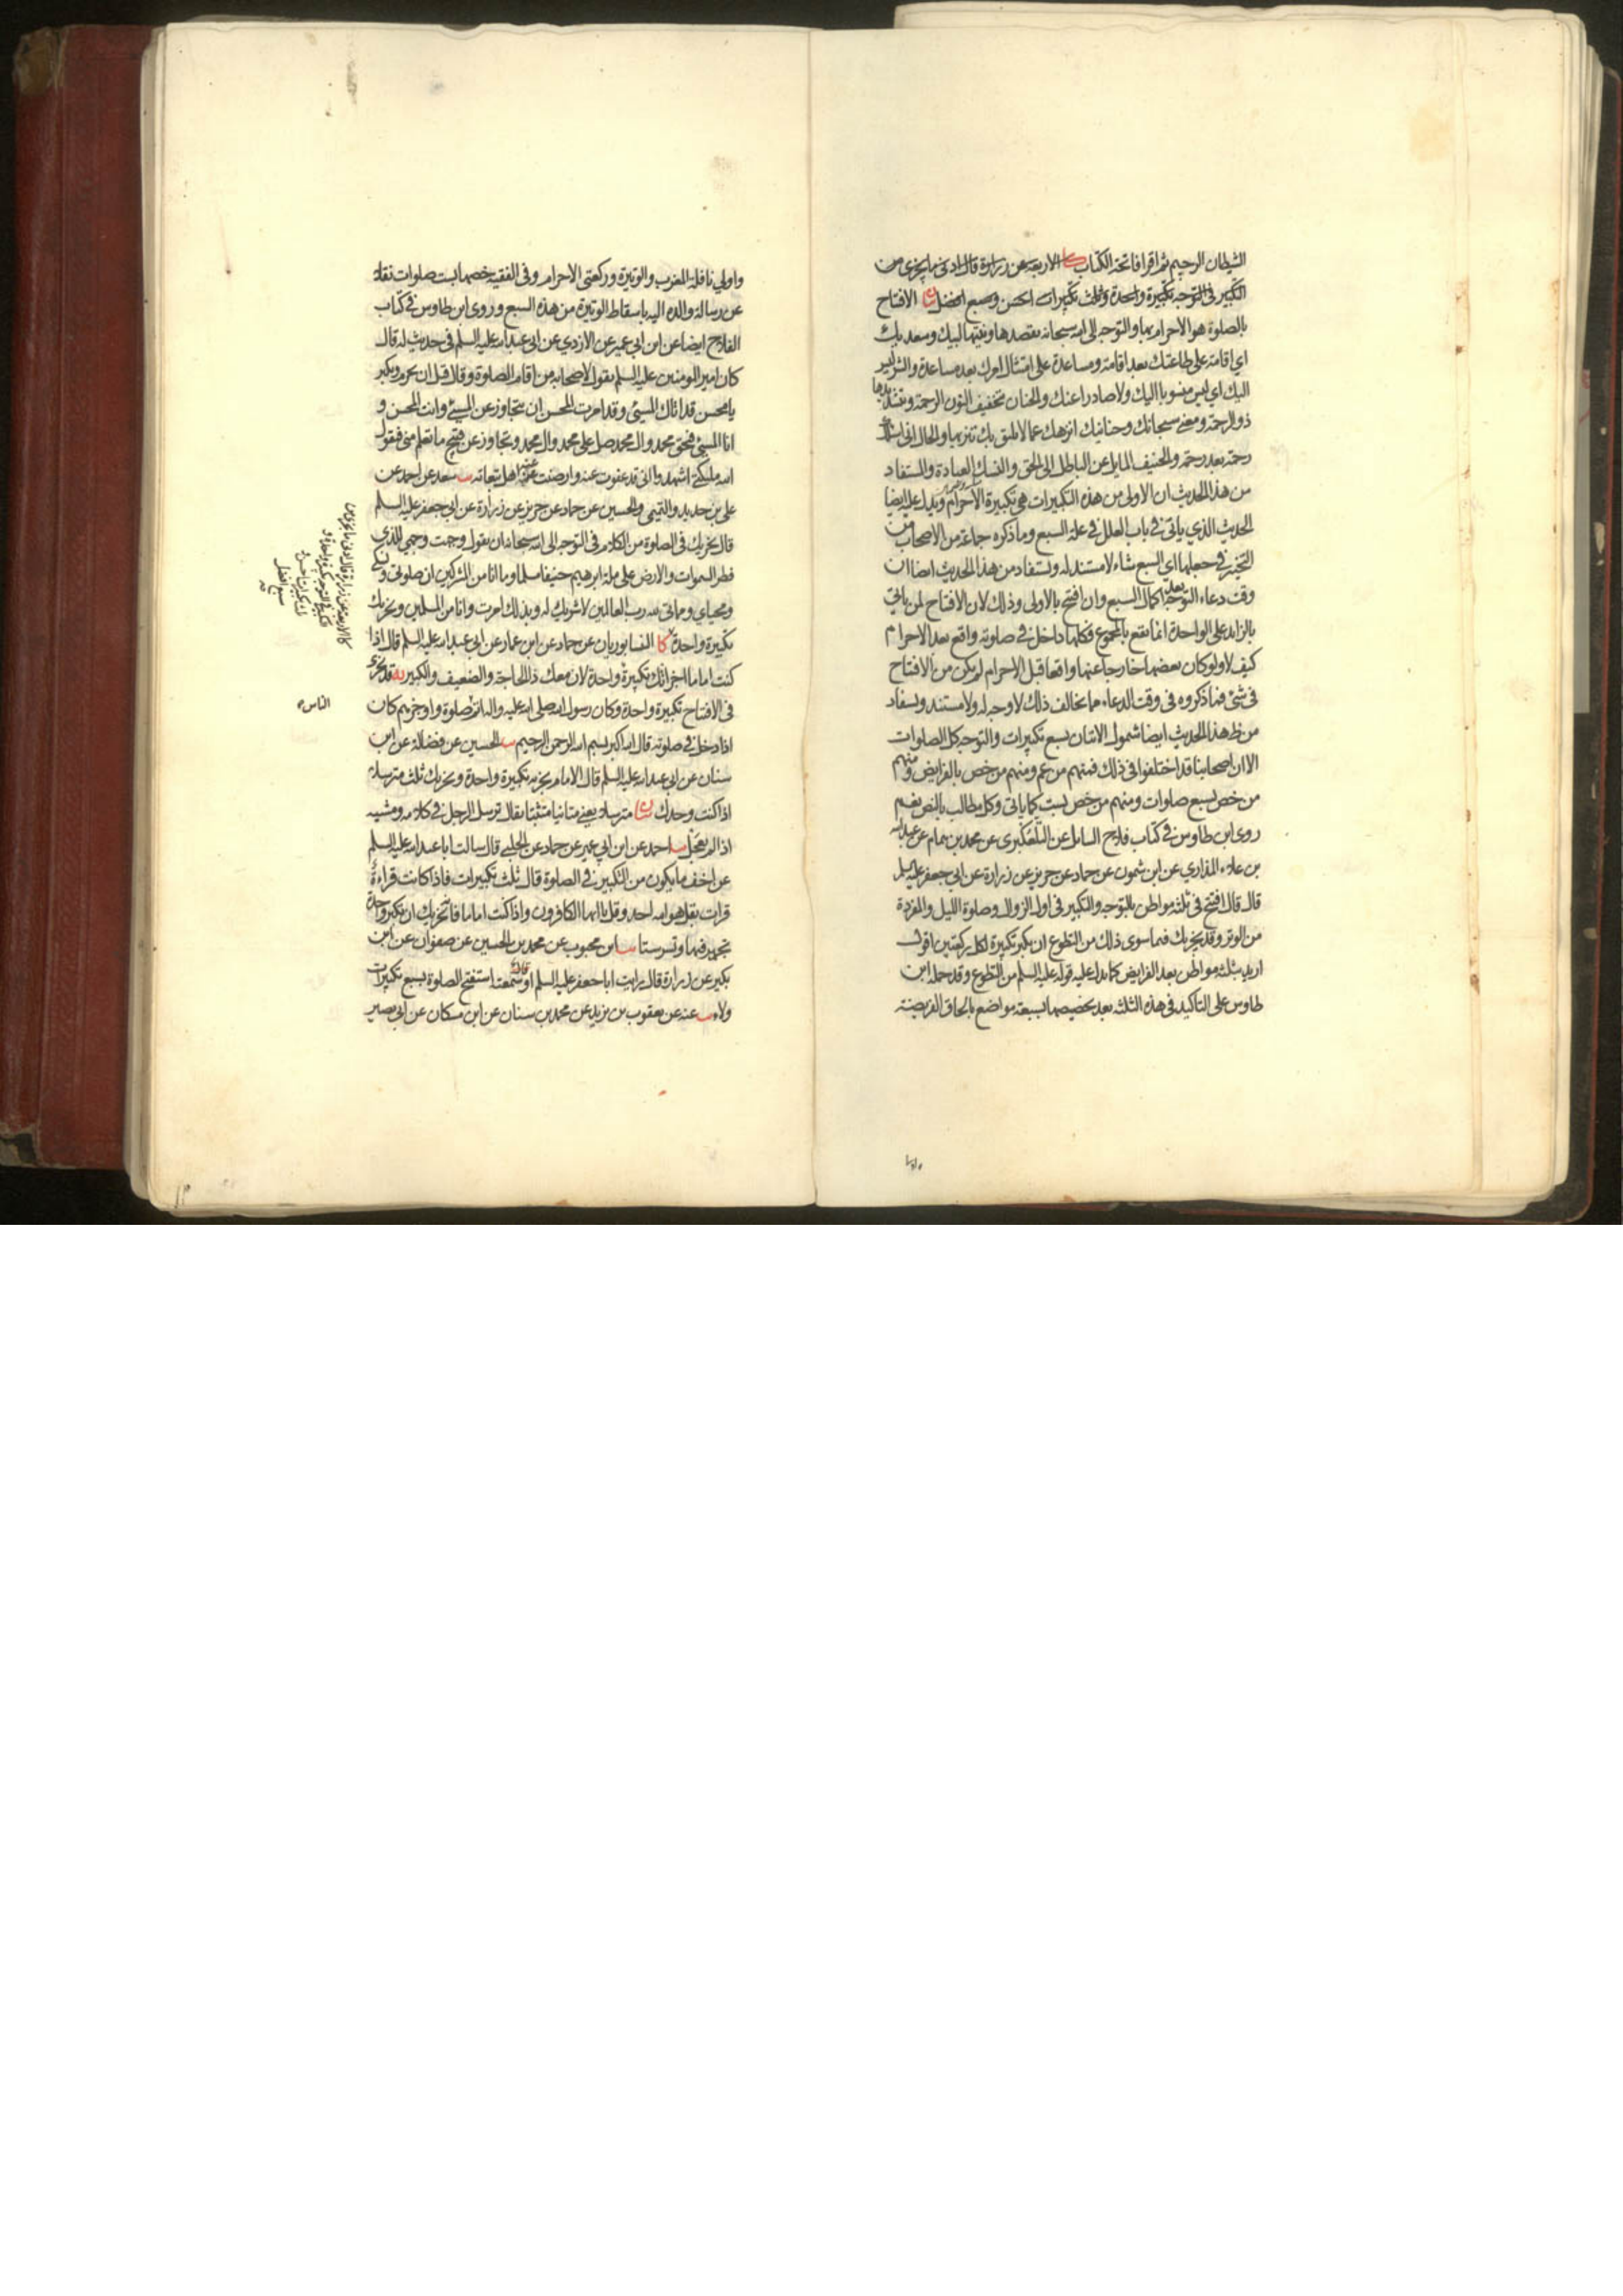 الشيطان الرجيم ثم اقرا فاتحة الكتاب كا الاربعة عن زرارة قال ادنى ما يجزى من
التكبير فى التوجه تكبيرة واحدة وثلث تكبيرات احسن وسبع افضل بيان الافتتاح
بالصلوة هو الاحرام بها والتوجه الى الله سبحانه بقصدها ونيتها لبيك وسعديك
اي اقامة على طاعتك بعد اقامة ومساعدة على امتثال امرك بعد مساعدة والشر ليس
اليك اي ليس منسوبا اليك ولا صادرا عنك والحنان بتخفيف النون الرحمة وبتشديدها
ذو الرحمة ومعنى سبحانك وحنانيك انزهك عما لا يليق بك تنزيها والحال انى اسئلك
رحمة بعد رحمة والحنيف المايل عن الباطل الى الحق والنسك العبادة والمستفاد
من هذا الحديث ان الاولى من هذه التكبيرات هى تكبيرة الاحرام ويدل عليه ايضا
الحديث الذي ياتى فى باب العلل فى علة السبع وما ذكره جماعة من الاصحاب من
التخيير فى جعلها اى السبع شاء لا مستند له ويستفاد من هذا الحديث ايضا ان
وقت دعاء التوجه بعد اكمال السبع وان افتتح بالاولى وذلك لان الافتتاح لمن ياتى
بالزايد على الواحدة انما يقع بالمجموع فكلها داخل فى صلوته واقع بعد الاحرام
كيف لا ولو كان بعضها خارجا عنها واقعا قبل الاحرام لم يكن من الافتتاح
فى شئ فما ذكروه فى وقت الدعاء مما يخالف ذلك لا وجه له ولا مستند ويستفاد
من ظ هذا الحديث ايضا شمول الاتيان بسبع تكبيرات والتوجه كل الصلوات
الا ان اصحابنا قد اختلفوا فى ذلك فمنهم من عم ومنهم من خص بالفرايض ومنهم
من خص بسبع صلوات ومنهم من خص بست كما ياتى وكل مطالب بالنص نعم
روى ابن طاوس فى كتاب فلاح السايل عن التلعكبرى عن محمد بن همام عن عبد الله
بن علاء المذاري عن ابن شمون عن حماد عن حريز عن زرارة عن ابى جعفر عليه السلم
قال قال افتتح فى ثلثة مواطن بالتوجه والتكبير فى اول الزوال وصلوة الليل والمفردة
من الوتر وقد يجزيك فيما سوى ذلك من التطوع ان تكبر تكبيرة لكل ركعتين اقول
اريد بثلثة مواطن بعد الفرايض كما يدل عليه قوله عليه السلم من التطوع وقد حمله ابن
طاوس على التاكيد فى هذه الثلثة بعد تخصيصها بسبعة مواضع بالحاق الفريضة
واولي نافلة المغرب والوتيرة وركعتى الاحرام وفى الفقيه خصها بست صلوات نقلا
عن رسالة والده اليه باسقاط الوتيرة من هذه السبع وروى ابن طاوس فى كتاب
الفلاح ايضا عن ابن ابي عمير عن الازدي عن ابى عبد الله عليه السلم فى حديث له قال
كان امير المومنين عليه السلم يقول لاصحابه من اقام الصلوة وقال قبل ان يحرم ويكبر
يا محسن قد اتاك المسئ وقد امرت المحسن ان يتجاوز عن المسئ وانت المحسن و
انا المسئ فبحق محمد وال محمد صل على محمد وال محمد وتجاوز عن قبيح ما تعلم منى فيقول
الله ملئكتى اشهدوا انى قد عفوت عنه وارضيت عنه اهل تبعاته يب سعد عن احمد عن
على بن حديد والتميمى والحسين عن حماد عن حريز عن زرارة عن ابى جعفر عليه السلم
قال يجزيك فى الصلوة من الكلام فى التوجه الى الله سبحانه ان تقول وجهت وجهي للذي
فطر السموات والارض على ملة ابرهيم حنيفا مسلما وما انا من المشركين ان صلوتى ونسكى
ومحياي ومماتى لله رب العالمين لا شريك له وبذلك امرت وانا من المسلمين ويجزيك
تكبيرة واحدة كا النيسابوريان عن حماد عن ابن عمار عن ابى عبد الله عليه السلم قال اذا
كنت اماما اجزاتك تكبيرة واحدة لان معك ذا الحاجة والضعيف والكبير يه قد تجزى
فى الافتتاح تكبيرة واحدة وكان رسول الله صلى الله عليه واله اتم الناس صلوة واوجزهم كان
اذا دخل فى صلوته قال الله اكبر بسم الله الرحمن الرحيم يب الحسين عن فضالة عن ابن
سنان عن ابى عبد الله عليه السلم قال الامام يجزيه تكبيرة واحدة ويجزيك ثلث مترسلا
اذا كنت وحدك بيان مترسلا يعنى متانيا متثبتا يقال ترسل الرجل فى كلامه ومشيه
اذا لم يعجل يب احمد عن ابن ابي عمير عن حماد عن الحلبى قال سالت ابا عبد الله عليه السلم
عن اخف ما يكون من التكبير فى الصلوة قال ثلث تكبيرات فاذا كانت قراءة
قرات بقل هو الله احد وقل يا ايها الكافرون واذا كنت اماما فانه يجزيك ان تكبر واحدة
تجهر فيها وتسر ستا يب ابن محبوب عن محمد بن الحسين عن صفوان عن ابن
بكير عن زرارة قال رايت ابا جعفر عليه السلم او قال سمعته استفتح الصلوة بسبع تكبيرات
ولاء يب عنه عن يعقوب بن يزيد عن محمد بن سنان عن ابن مسكان عن ابى بصير
كا الاربعة عن زرارة قال ادنى ما يجزى من
التكبير فى التوجه تكبيرة واحدة و
ثلث تكبيرات احسن و
سبع افضل
الناس